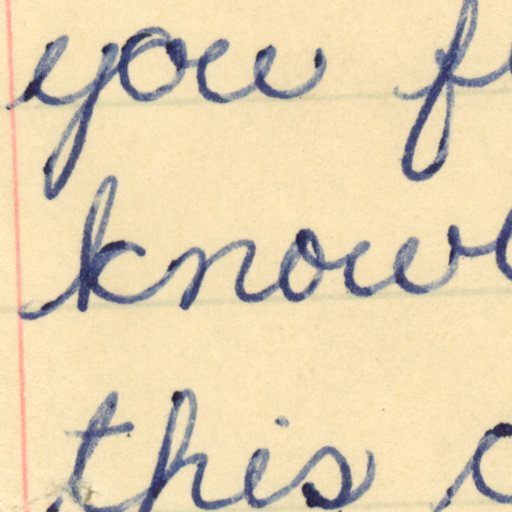 you f
know
this